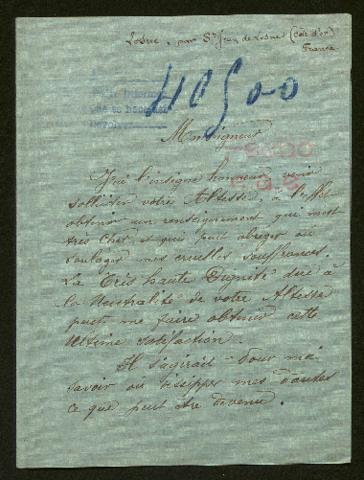 Losne, par St Jean de Losne (Côte d'or)
France
40500
Monseigneur
J'ai l'insigne honneur venir
solliciter votre Altesse, à l'effet
obtenir un renseignement qui m'est
très cher et qui peut abréger ou
soulager mes cruelles souffrances.
La Très haute Dignité due à
la Neutralité de votre Altesse
peut me faire obtenir cette
ultime satisfaction.
Il s'agirait - dous me
savoir où dissiper mes doutes
ce que peut être devenu.